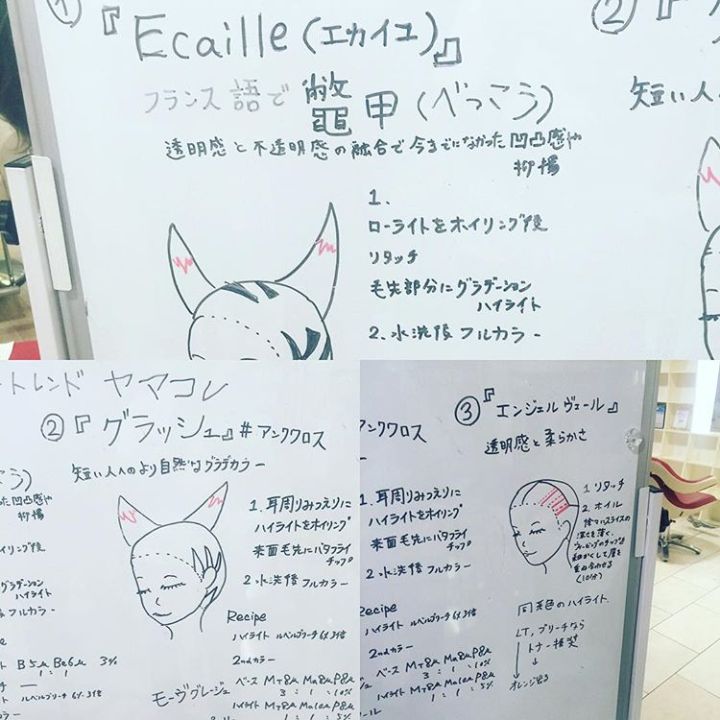 ①『Ecaille(エカイユ)』
フランス語で 鼈甲(べっこう)
透明感と不透明感の融合で今までになかった凹凸感や
抑揚
1.
ローライトをホイリング後
リタッチ
毛先部分にグラデーション
ハイライト
2.水洗後フルカラー
②
短い人
トレンド ヤマコレ
②『グラッシュ』#アンクワロス
短い人へのより自然なグラデカラー
1.耳周りみつえりに
ハイライトをホイリング
表面毛先にバタフライ
チップ
2.水洗後フルカラー
Recipe
ハイライト ルベルブリーチ 6% 3倍
2ndカラー
ベース MT8μ Ma8μ P8μ
3 : 1 : 10%
ハイライト MT8μ Ma10μ P8μ
1 : 1 : 5%
モーヴグレージュ
ホイリング後
グラデーション
ハイライト
フルカラー
ト B5μ Be6μ 3%
1 : 1
ルベルブリーチ 6% 3倍
③『エンジェル ヴェール』
透明感と柔らかさ
1 リタッチ
2 ホイル
深さを薄く、
細かくして層を
重ね合わせる
同系色のハイライト
LT,ブリーチなら
トナー推奨
アンクワロス
カラー
1.耳周りみつえりに
ハイライトをホイリング
表面毛先にバタフライ
チップ
2.水洗後フルカラー
Recipe
ハイライト ルベルブリーチ 6% 3倍
2ndカラー
ベース MT8μ Ma8μ P8μ
3 : 1 : 10%
ハイライト MT8μ Ma10μ P8μ
1 : 1 : 5%